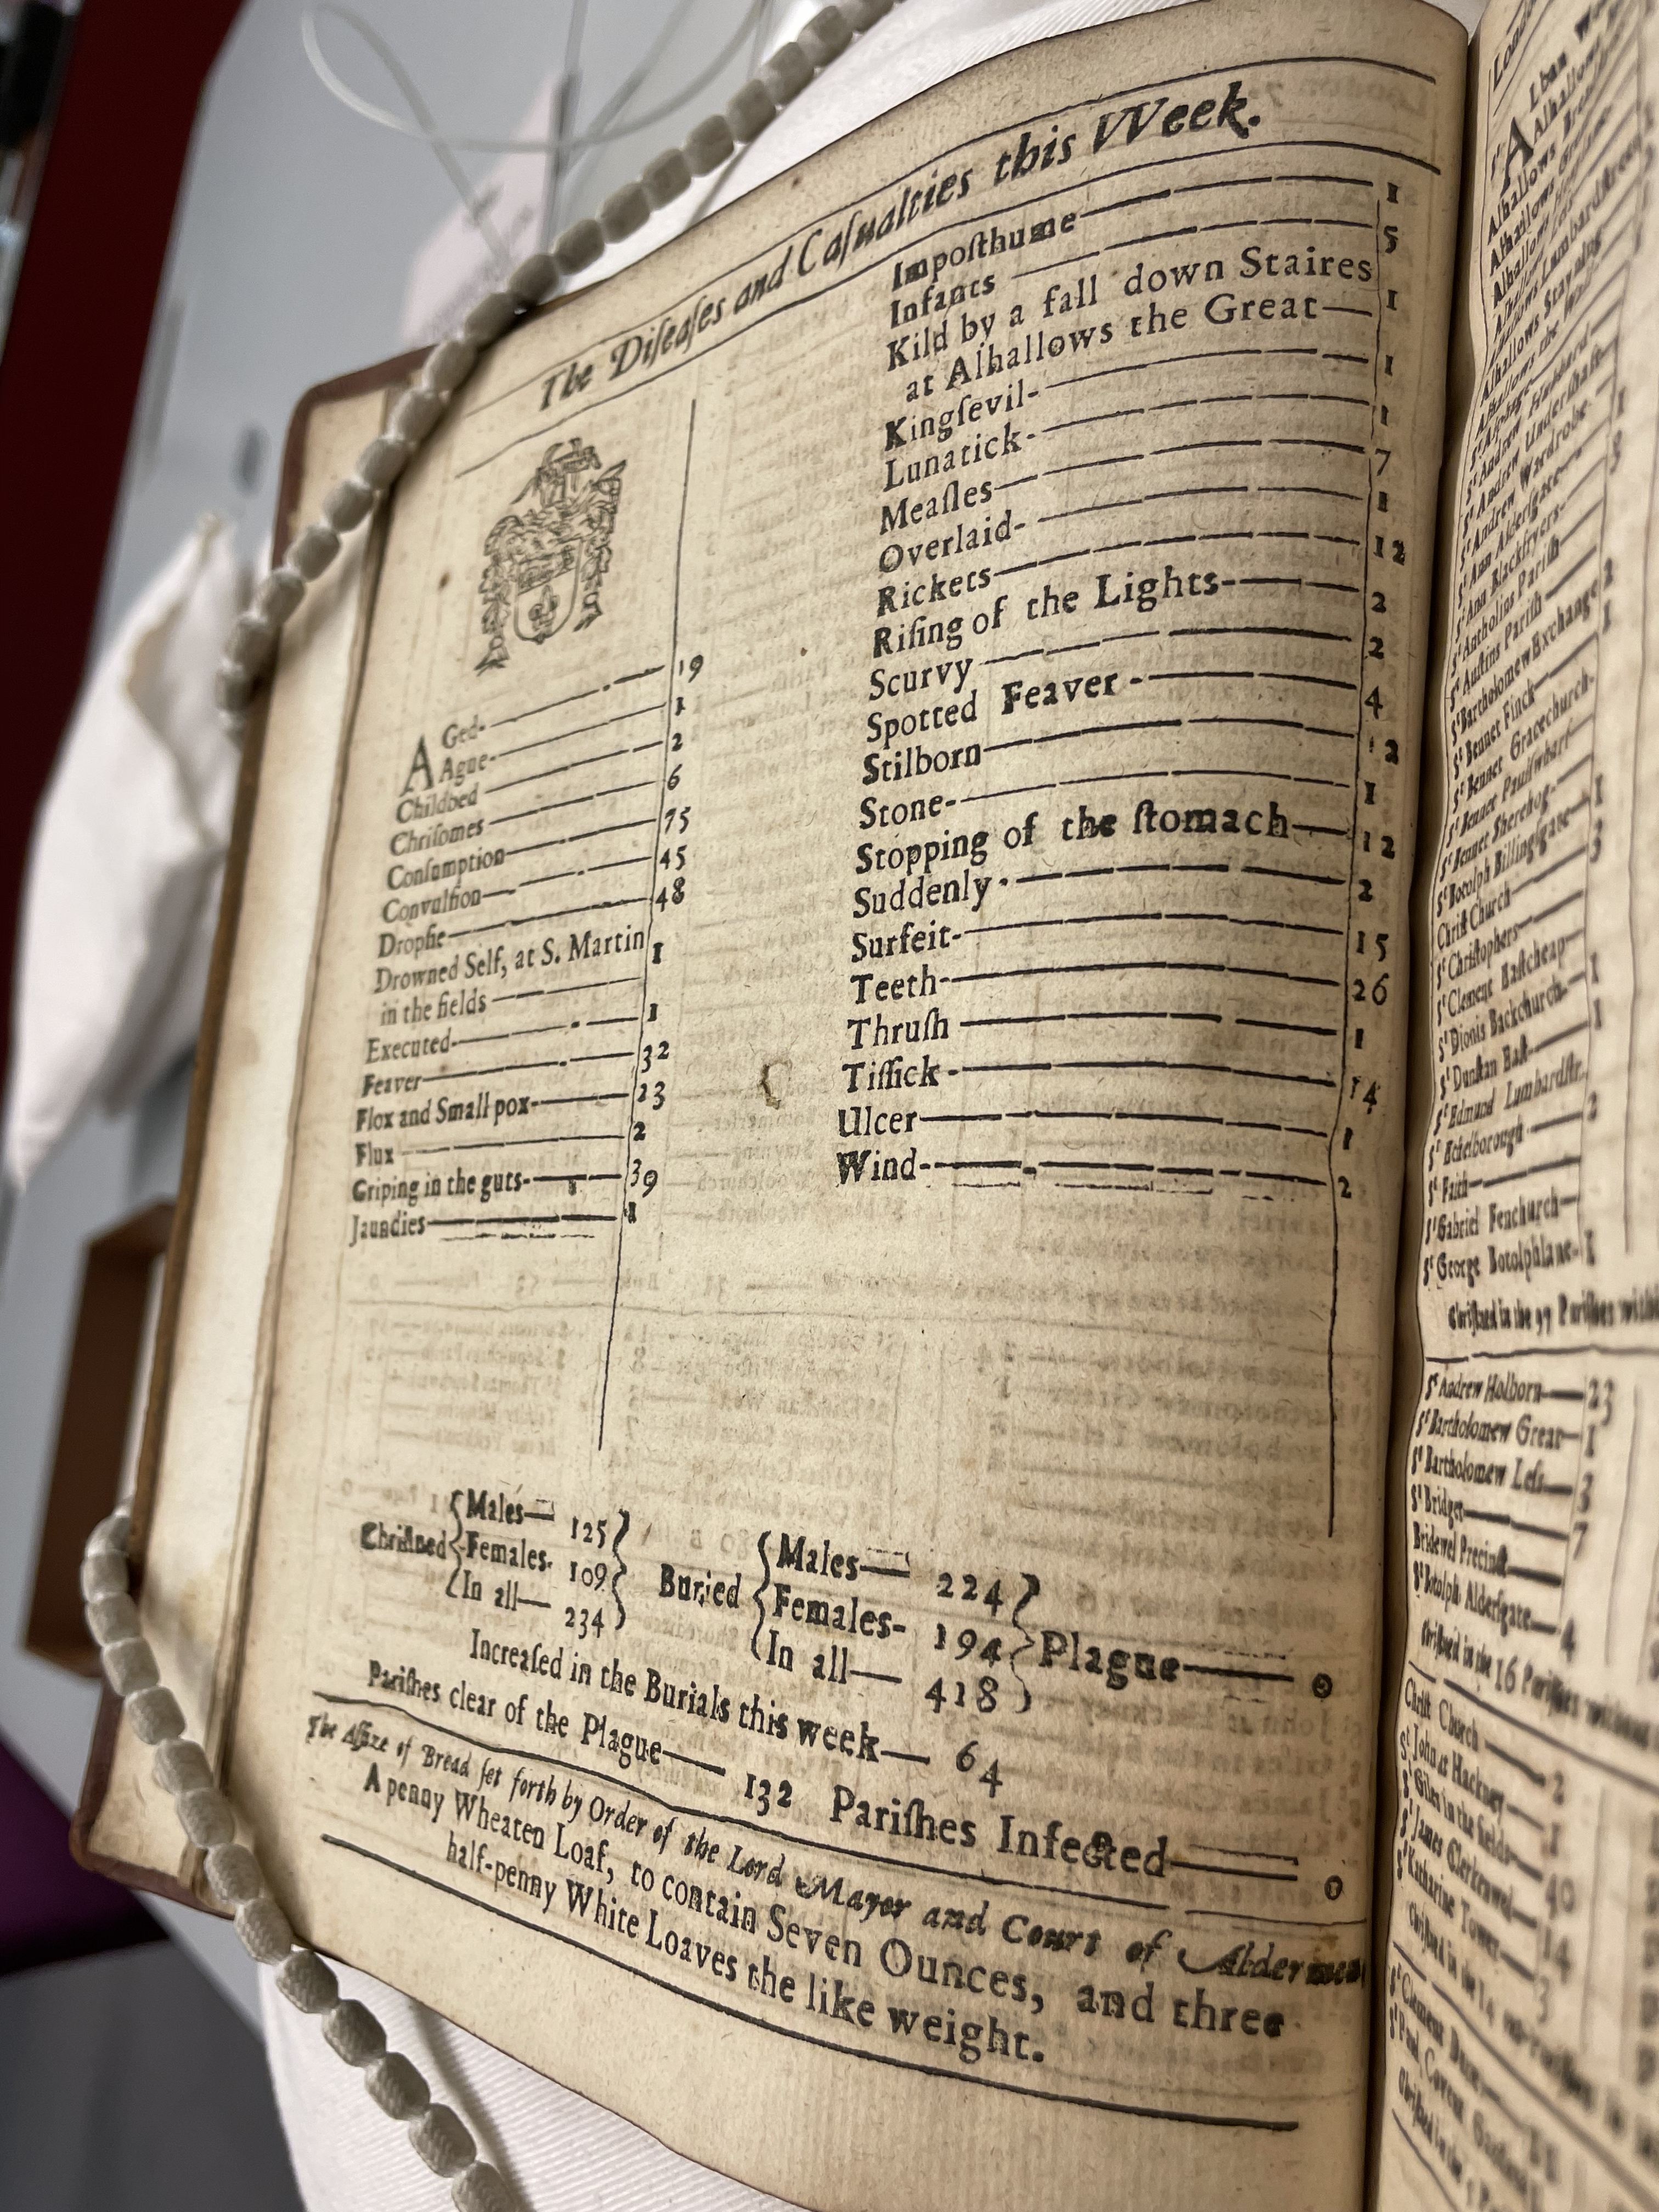 The Diſeaſes and Caſualties this VVeek.
AGed 19
Ague 1
Childbed 2
Chriſomes 6
Conſumption 75
Convulſion 45
Dropſie 48
Drowned Self, at S. Martin
in the fields 1
Executed 1
Feaver 32
Flox and Small pox 23
Flux 2
Griping in the guts 39
Jaundies 1
Impoſthume 1
Infants 5
Kild by a fall down Staires
at Alhallows the Great 1
Kingſevil 1
Lunatick 1
Meaſles 7
Overlaid 1
Rickets 12
Riſing of the Lights 2
Scurvy 2
Spotted Feaver 4
Stilborn 12
Stone 1
Stopping of the ſtomach 12
Suddenly 2
Surfeit 15
Teeth 26
Thruſh 1
Tiſſick 14
Ulcer 1
Wind 2
Chriſtned
Males 125
Females 109
In all 234
Buried
Males 224
Females 194
In all 418
Plague 0
Increaſed in the Burials this week 64
Pariſhes clear of the Plague 132 Pariſhes Infected 0
The Aſſize of Bread ſet forth by Order of the Lord Mayor and Court of Aldermen
A penny Wheaten Loaf, to contain Seven Ounces, and three
half-penny White Loaves the like weight.
Alhallows
Alhallows
Alhallows
Alhallows
Alhallows Lumbardſtreet
Alhallows Stayning
Alhallows the Wall
Sᵗ Andrew Hubbard
Sᵗ Andrew Underſhaft
Sᵗ Andrew Wardrobe
Sᵗ Ann Alderſgate
Sᵗ Ann Blackfryers
Sᵗ Antholins Pariſh
Sᵗ Auſtins Pariſh
Sᵗ Bartholomew Exchange
Sᵗ Bennet Finck
Sᵗ Bennet Gracechurch
Sᵗ Bennet Paulſwharf
Sᵗ Bennet Sherehog
Sᵗ Botolph Billingſgate
Chriſt Church
Sᵗ Chriſtophers
Sᵗ Clement Eaſtcheap
Sᵗ Dionis Backchurch
Sᵗ Dunſtan Eaſt
Sᵗ Edmund Lumbardſtr.
Sᵗ Ethelborough
Sᵗ Faith
Sᵗ Gabriel Fenchurch
Sᵗ George Botolphlane
Chriſtned in the 97 Pariſhes
Sᵗ Andrew Holborn 23
Sᵗ Bartholomew Great 1
Sᵗ Bartholomew Leſs 3
Sᵗ Bridget 7
Bridewel Precinct
Sᵗ Botolph Alderſgate 4
Chriſtned in the 16 Pariſhes without
Chriſt Church 2
Sᵗ John at Hackney 1
Sᵗ Giles in the fields 40
Sᵗ James Clerkenwel 14
Sᵗ Katharine Tower 3
Sᵗ Clement Danes
Sᵗ Paul Covent Garden